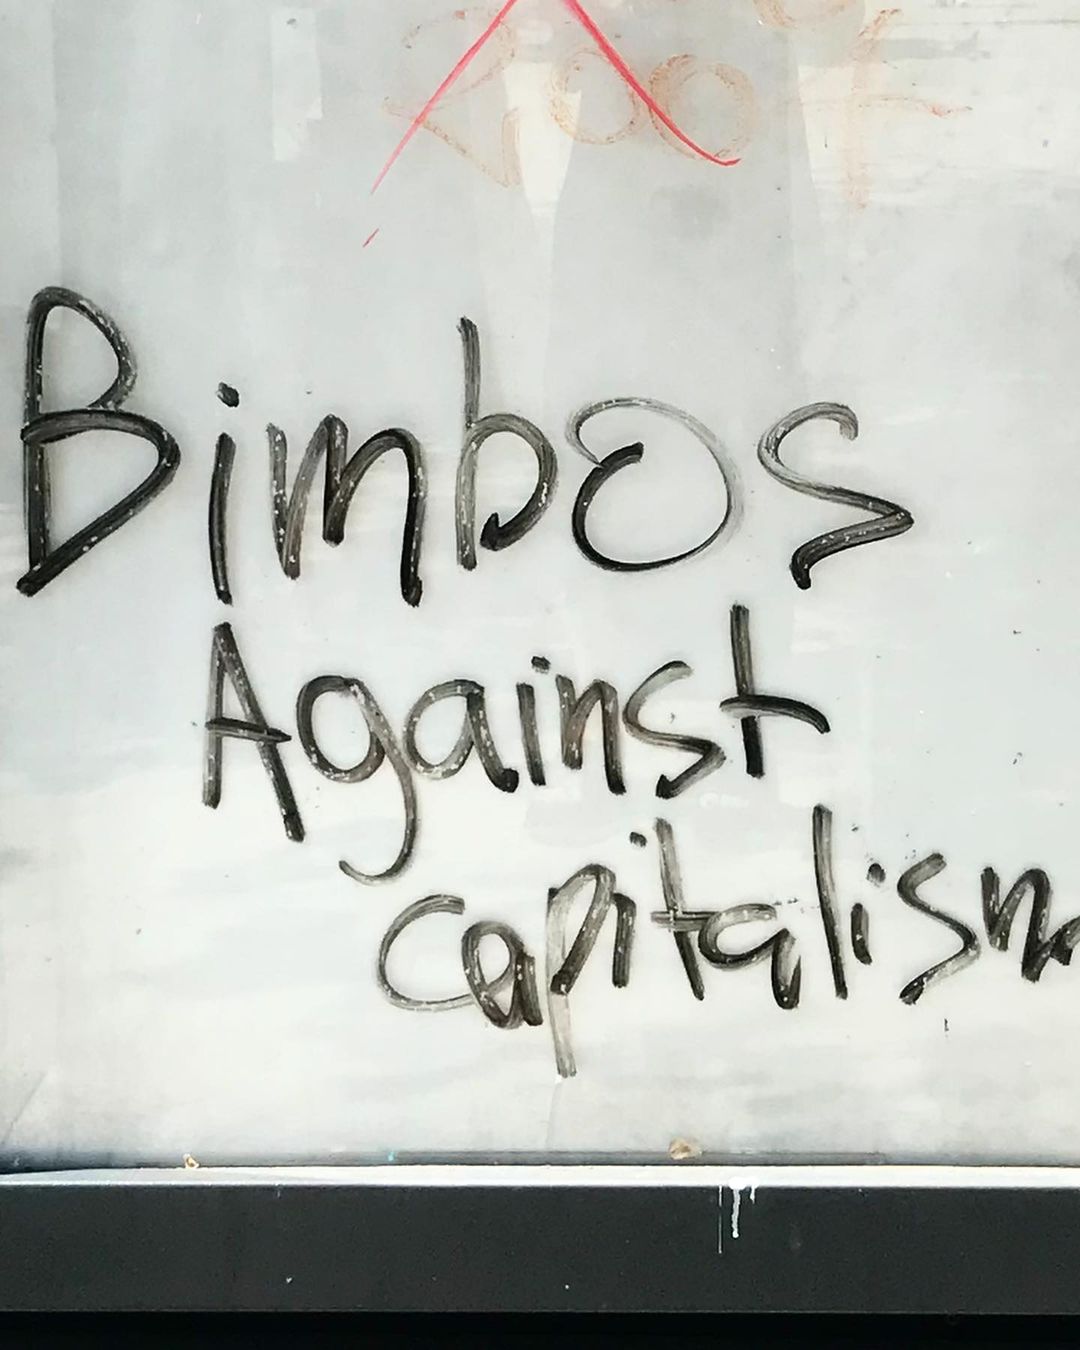 Bimbos
Against
capitalism